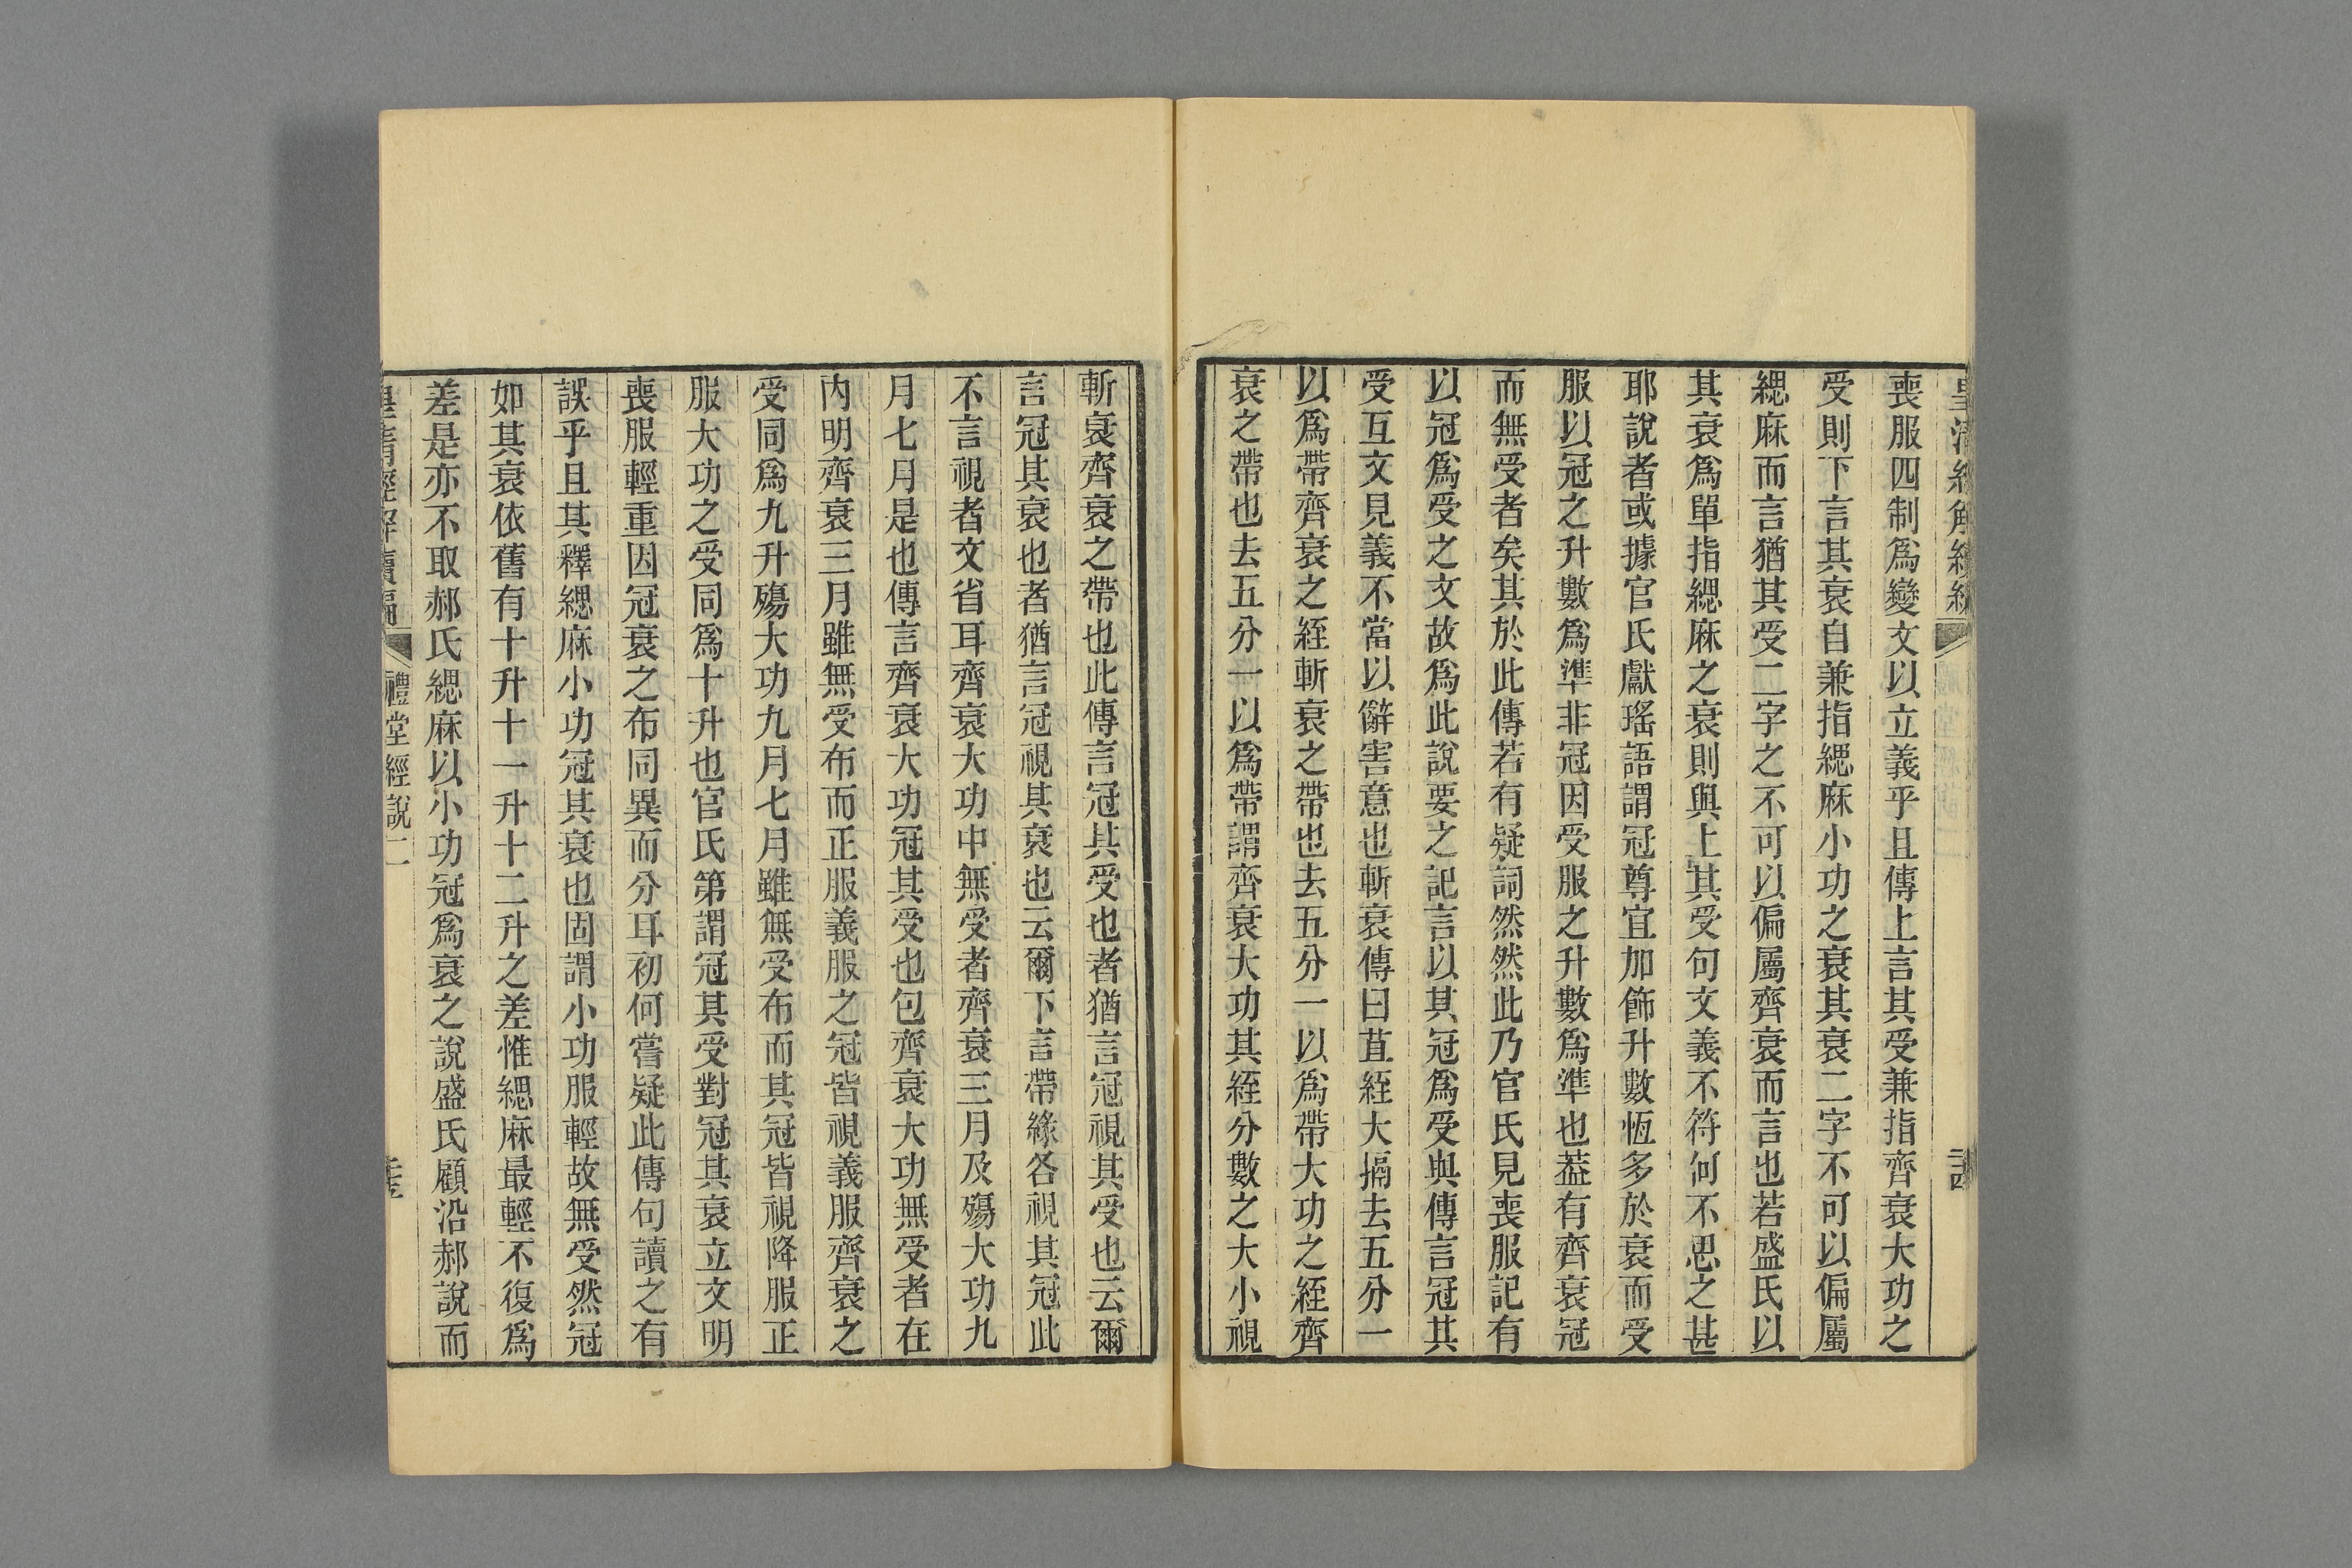 喪服四制爲變文以立義乎且傳上言其受兼指齊衰大功之
受則下言其衰自兼指緦麻小功之衰其衰二字不可以偏屬
緦麻而言猶其受二字之不可以偏屬齊衰而言也若盛氏以
其衰爲單指緦麻之衰則與上其受句文義不符何不思之甚
耶說者或據官氏獻瑤語謂冠尊宜加飾升數恆多於衰而受
服以冠之升數爲準非冠因受服之升數爲準也葢有齊衰冠
而無受者矣其於此傳若有疑詞然然此乃官氏見喪服記有
以冠爲受之文故爲此說要之記言以其冠爲受與傳言冠其
受互文見義不當以辭害意也斬衰傳曰苴絰大搹去五分一
以爲帶齊衰之絰斬衰之帶也去五分一以爲帶大功之絰齊
衰之帶也去五分一以爲帶謂齊衰大功其絰分數之大小視
斬衰齊衰之帶也此傳言冠其受也者猶言冠視其受也云爾
言冠其衰也者猶言冠視其衰也云爾下言帶緣各視其冠此
不言視者文省耳齊衰大功中無受者齊衰三月及殤大功九
月七月是也傳言齊衰大功冠其受也包齊衰大功無受者在
內明齊衰三月雖無受布而正服義服之冠皆視義服齊衰之
受同爲九升殤大功九月七月雖無受布而其冠皆視降服正
服大功之受同爲十升也官氏第謂冠其受對冠其衰立文明
喪服輕重因冠衰之布同異而分耳初何嘗疑此傳句讀之有
誤乎且其釋緦麻小功冠其衰也固謂小功服輕故無受然冠
如其衰依舊有十升十一升十二升之差惟緦麻最輕不復爲
差是亦不取郝氏緦麻以小功冠爲衰之說盛氏顧沿郝說而
皇清經解續編 禮堂經說二